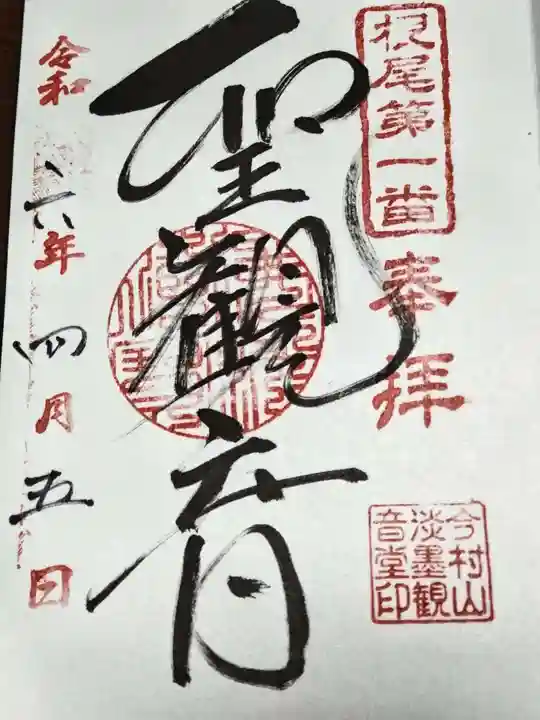 根尾第一番
奉拝
今村山
淡墨観
音堂印
聖観音
令和六年四月五日